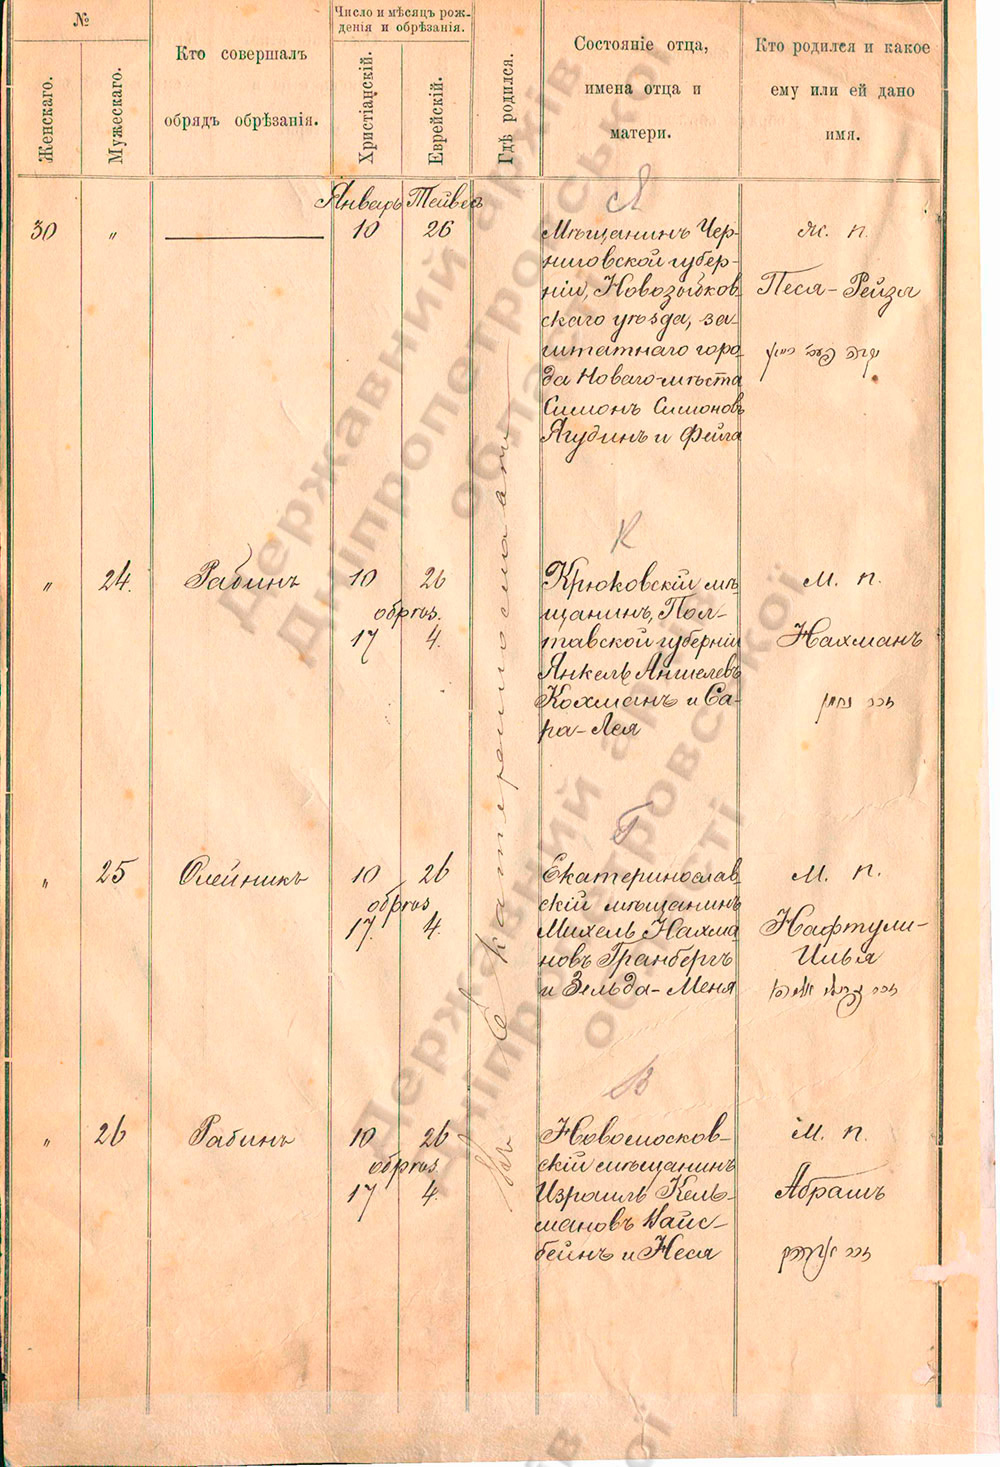 №
Женскаго.
Мужескаго.
Кто совершалъ
обрядъ обрѣзанія.
Число и мѣсяцъ рож-
денія и обрѣзанія.
Христіанскій.
Еврейскій.
Гдѣ родился.
Состояніе отца,
имена отца и
матери.
Кто родился и какое
ему или ей дано
имя.
Январь Тейвесъ
Я
30 " 10 26
Мѣщанинъ Чер-
ниговской губер-
ніи, Новозыбков
скаго уѣзда, за-
штатнаго горо-
да Новаго-мѣста
Симонъ Симоновъ
Ягудинъ и Фейга
ж. п.
Песя-Рейзя
Въ Екатеринославѣ
К
" 24. Рабинъ 10 26
обрѣз.
17 4.
Крюковскій мѣ
щанинъ, Пол-
тавской губерніи
Янкель Аншелевъ
Кохманъ и Са-
ра-Лея
м. п.
Нахманъ
זכר נחמן
Г
" 25 Олейникъ 10 26
обрѣз
17. 4.
Екатеринослав
скій мѣщанинъ
Михель Нахма
новъ Гранбергъ
и Зельда-Меня
м. п.
Нафтули-
Илья
זכר
В
" 26 Рабинъ 10 26
обрѣз.
17 4.
Новомосков-
скій мѣщанинъ
Израиль Кель-
мановъ Вайс-
бейнъ и Неся
м. п.
Абрамъ
זכר אברהם
Державний архів
Дніпропетровської
області
Державний архів
Дніпропетровської
області